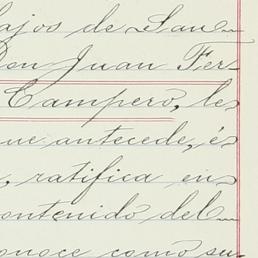 ajos de San
Don Juan Fer-
Campero, le
que antecede, é
, ratifica en
contenido del
conoce como su